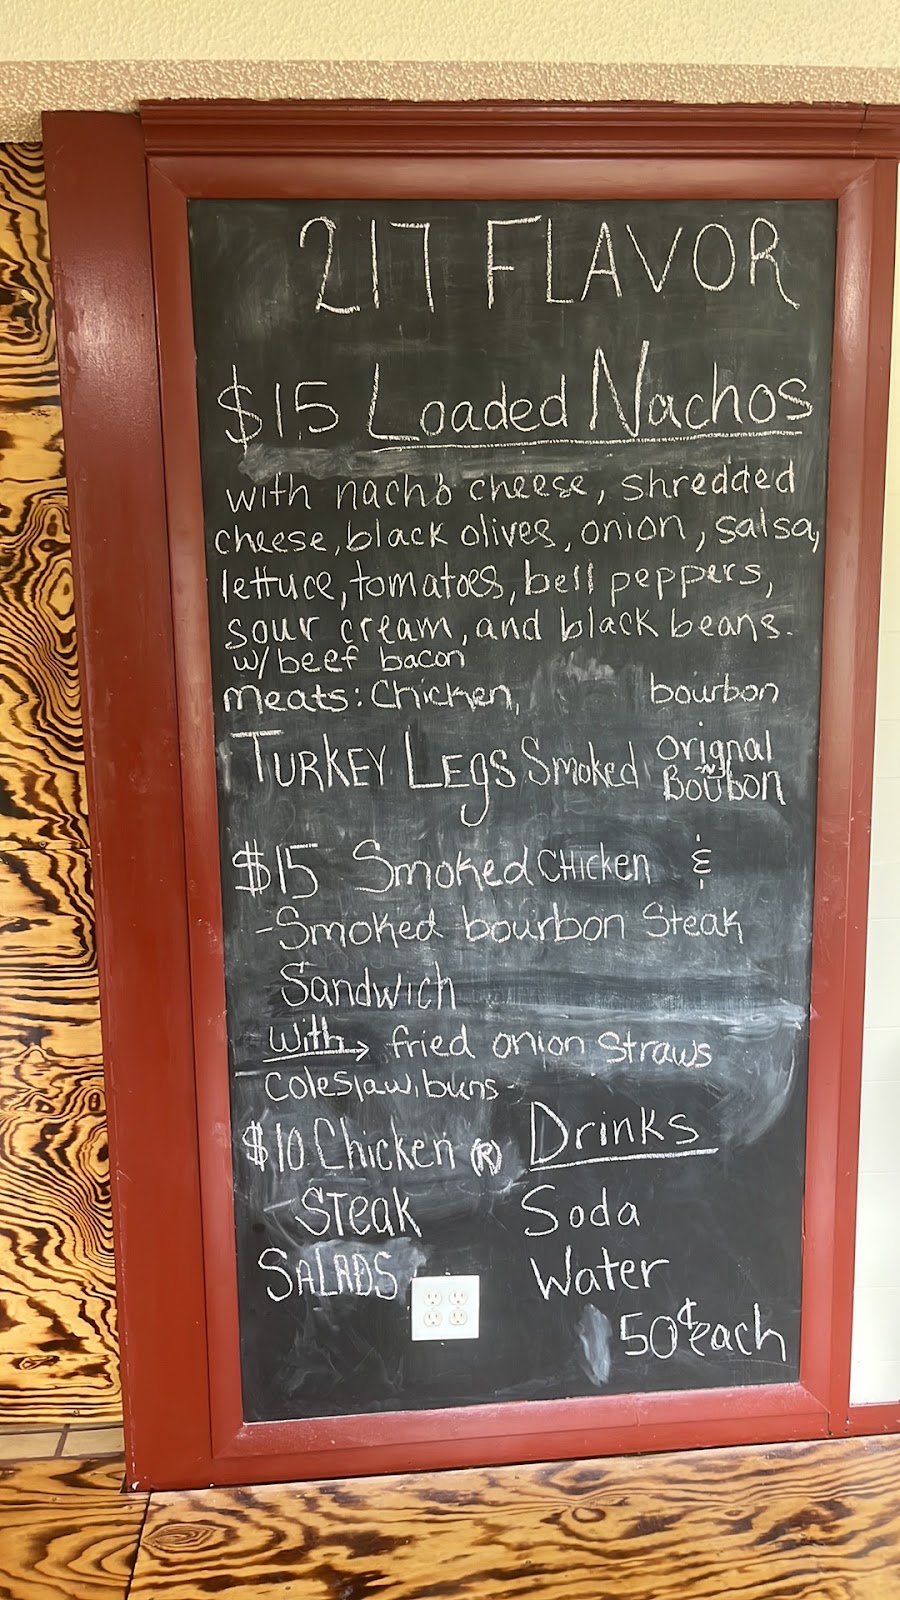 217 FLAVOR
$15 Loaded Nachos
with nacho cheese, shredded
cheese, black olives, onion, salsa,
lettuce, tomatoes, bell peppers,
sour cream, and black beans.
w/ beef bacon
meats: Chicken, bourbon
TURKEY LEGS Smoked Orignal
Boubon
$15 Smoked CHICKEN &
-Smoked bourbon Steak
Sandwich
with → fried onion straws
coleslaw, buns
$10 Chicken ®
STEAK
SALADS
Drinks
Soda
Water
50¢ each